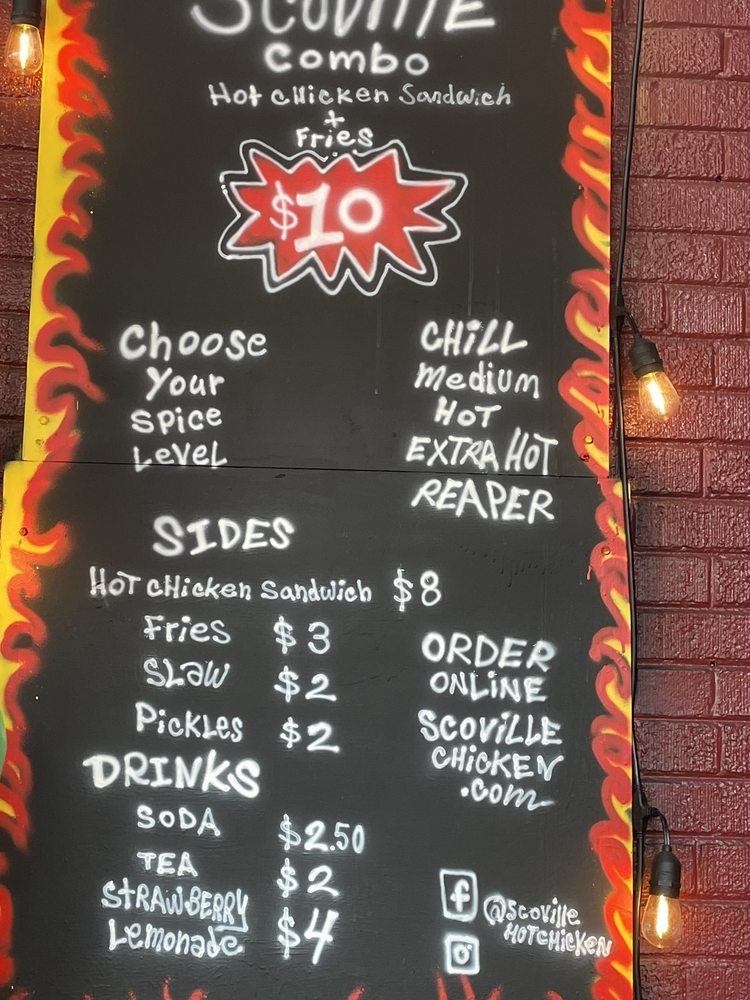 SCOVILLE
Combo
Hot cHicken Sandwich
+
Fries
$10
Choose
Your
Spice
Level
CHiLL
Medium
HOT
EXTRA HOT
REAPER
SIDES
HOT cHicken Sandwich $8
Fries $3
SLaw $2
Pickles $2
DRINKS
SODA $2.50
TEA $2
STRAWBERRY
Lemonade $4
ORDER
ONLINE
SCOViLLE
CHiCKEN
.com
f @Scoville
HOTCHiCKEN